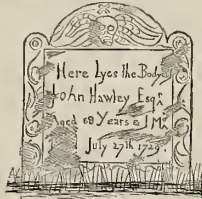 Here Lyes the Body
John Hawley Esqr
Aged 68 Years & 1 Mo
July 27th 1729.